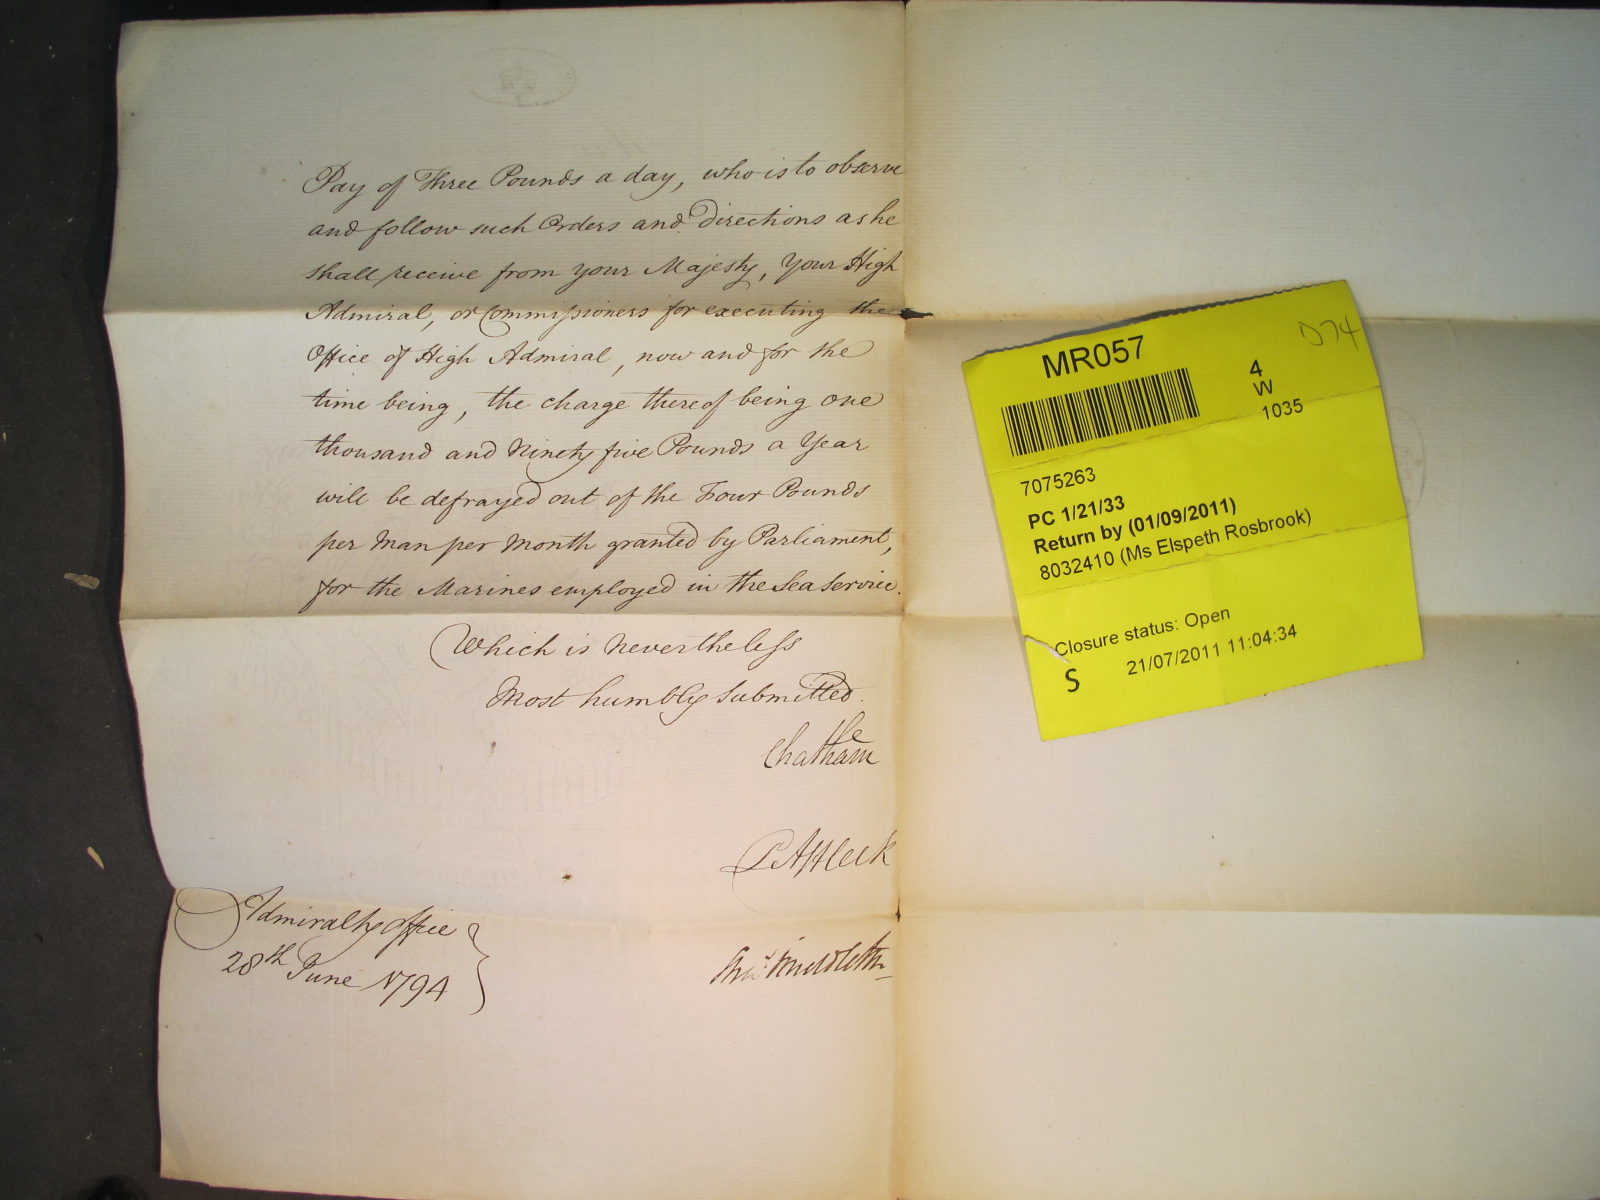 Pay of Three Pounds a day, who is to observe
and follow such Orders and Directions as he
shall receive from your Majesty, Your High
Admiral, or Commissioners for executing the
Office of High Admiral, now and for the
time being, the charge thereof being one
thousand and Ninety five Pounds a Year
will be defrayed out of the Four Pounds
per Man per Month granted by Parliament,
for the Marines employed in the Sea Service.
Which is nevertheless
Most humbly submitted.
Chatham
P Affleck
Chas Middleton
Admiralty Office
28th June 1794
MR057
D74
4
W
1035
7075263
PC 1/21/33
Return by (01/09/2011)
8032410 (Ms Elspeth Rosbrook)
Closure status: Open
S 21/07/2011 11:04:34